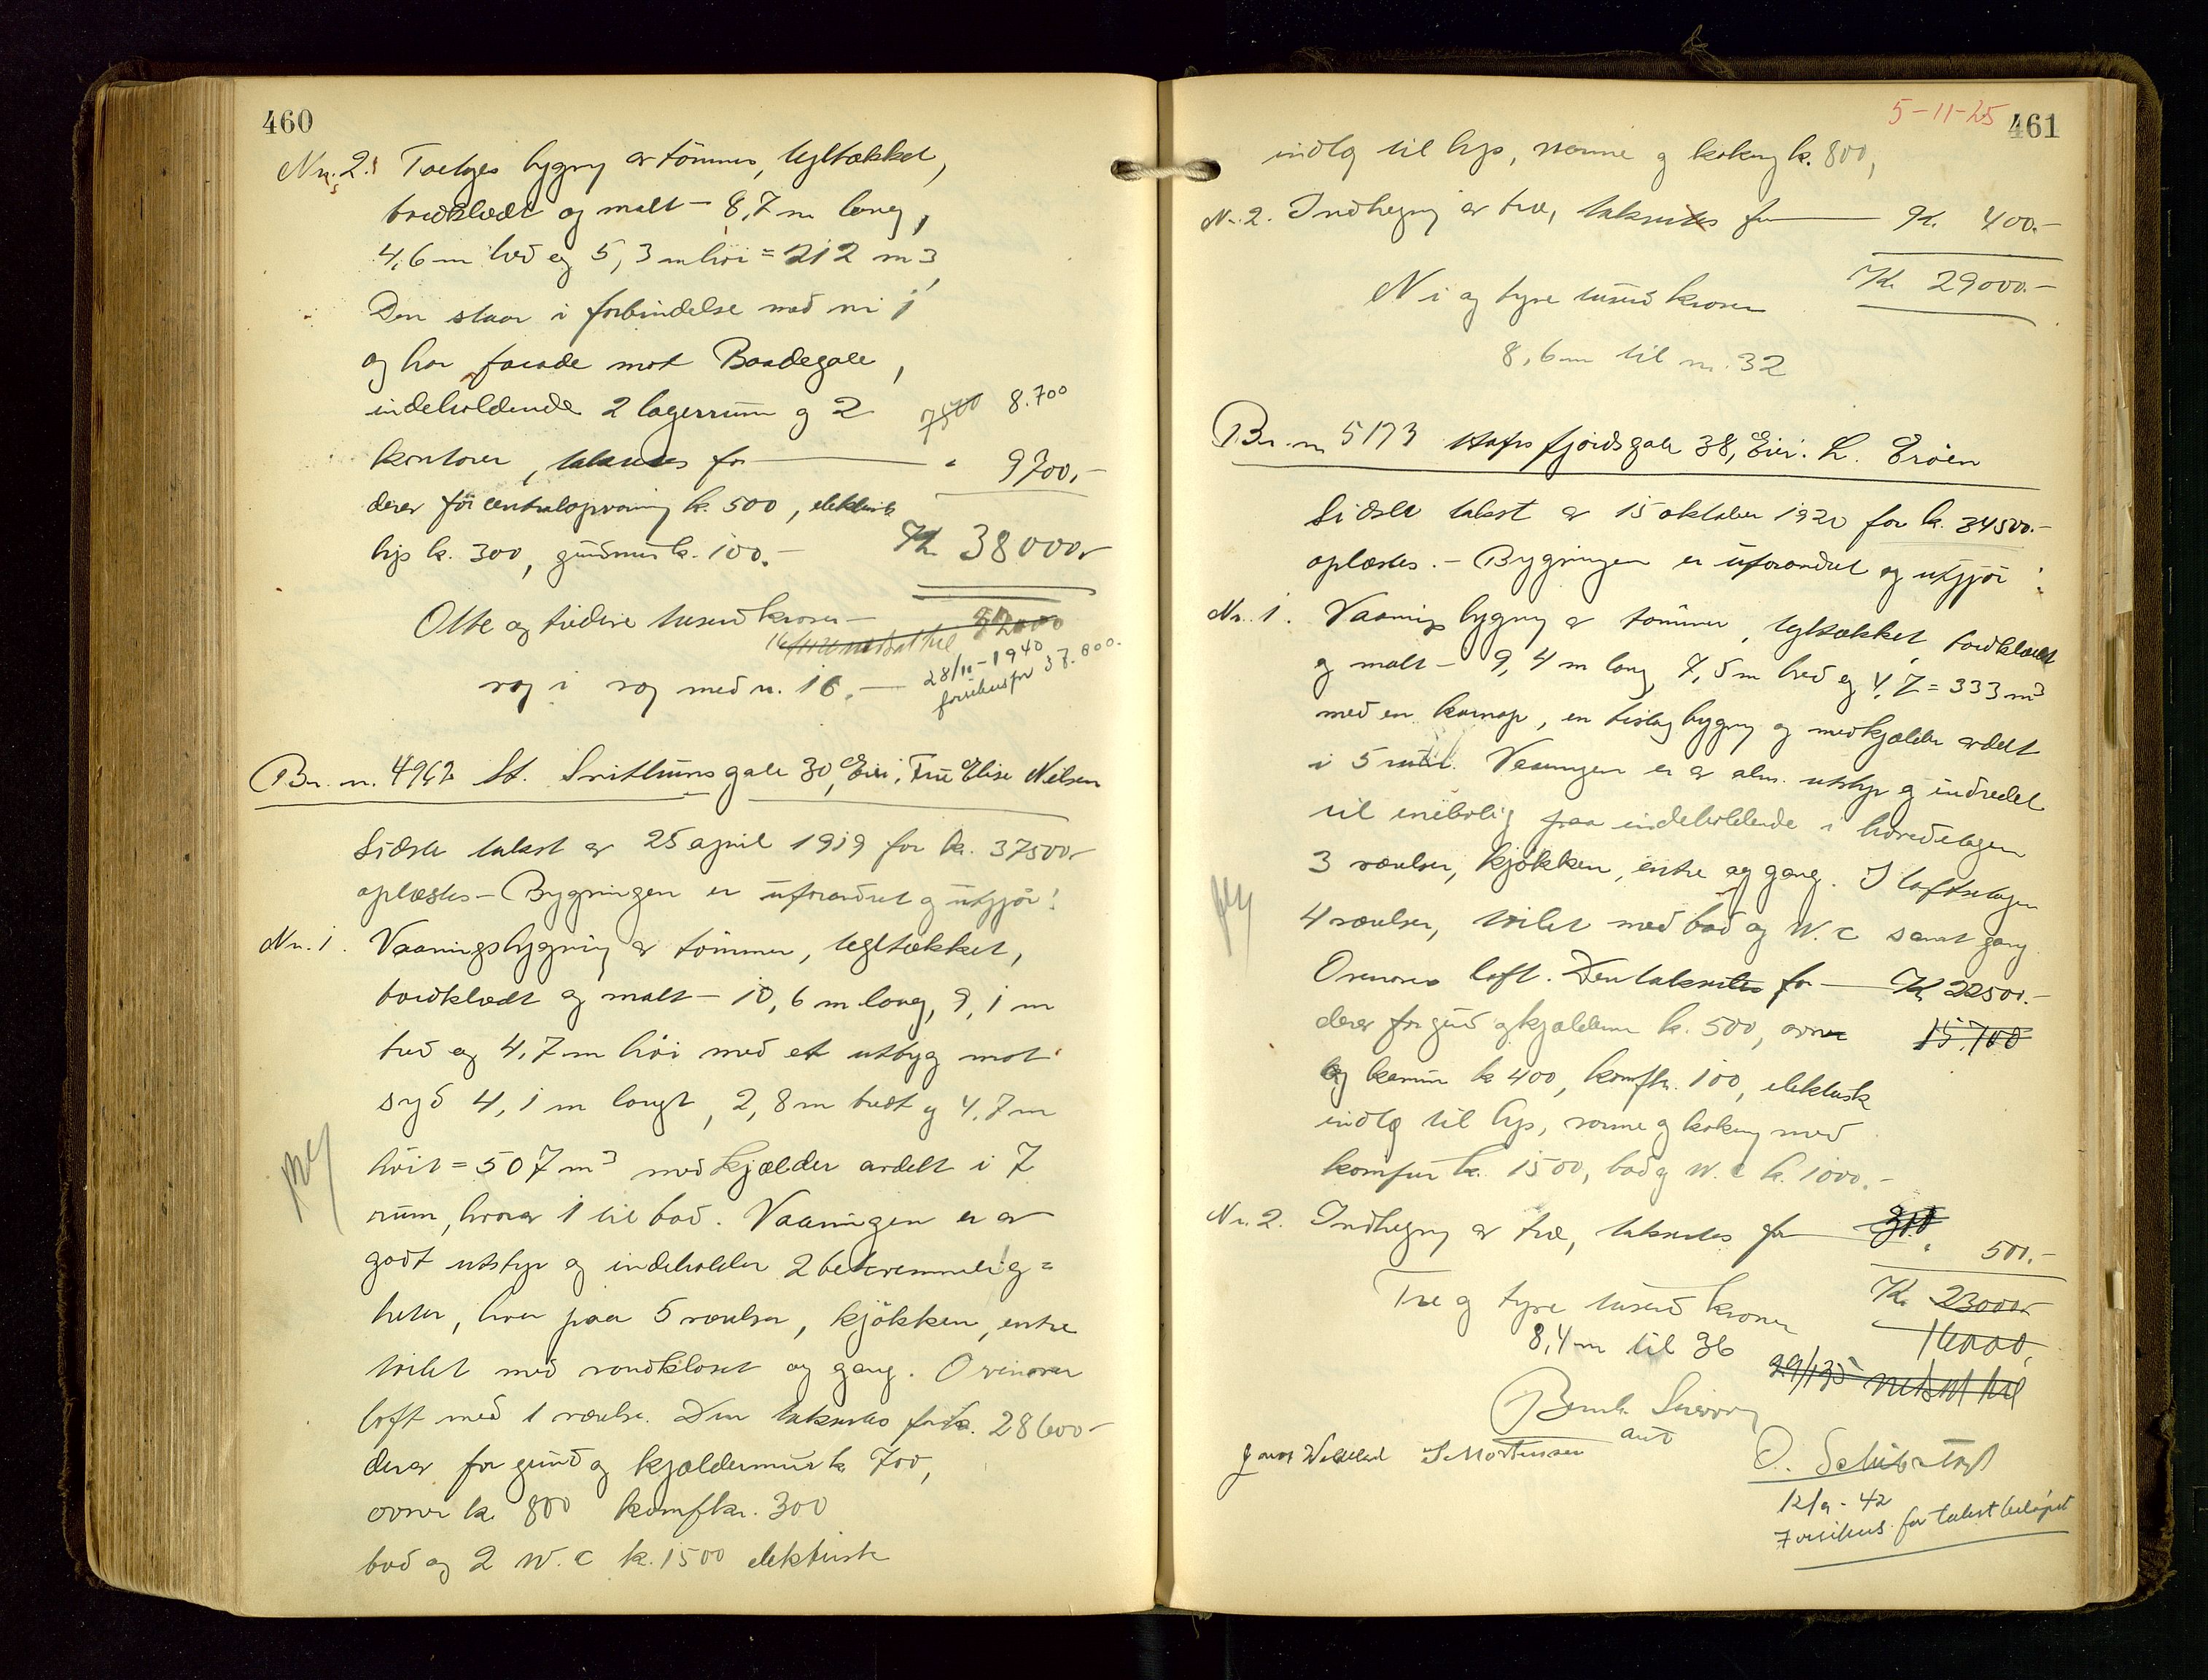 460
Nr. 2. Toetages bygning av tømmer, tegltækket,
bordklædt og malt – 8,7 m lang,
4,6 m bred og 5,3 m høi = 212 m³
Den staar i forbindelse med nr 1
og har facade mot Baadegate,
indeholdende 2 lagerrum og 2
7500 8.700
kontorer, takseres for — " 9700,-
derav for centralopvarming kr. 500, elektrisk
lys kr. 300, grundmur kr. 100.- Kr 38000,-
Otte og tredive tusend kroner –
32000
væg i væg med nr. 16. –
28/11-1940
forsikres for 37.800.
Br. nr. 4962 St. Svithunsgate 30, Eier: Fru Elise Nilsen
Sidste takst av 25 april 1919 for kr. 37500,-
oplæstes – Bygningen er uforandret og utgjør:
Nr. 1. Vaaningsbygning av tømmer, tegltækket,
bordklædt og malt – 10,6 m lang, 9,1 m
bred og 4,7 m høi med et utbyg mot
syd 4,1 m langt, 2,8 m bredt og 4,7 m
høit = 507 m³ med kjælder avdelt i 7
rum, hvorav 1 til bad. Vaaningen er av
godt utstyr og indeholder 2 bekvemmelig=
heter, hver paa 5 værelser, kjøkken, entre
toilet med vandkloset og gang. Ovenover
loft med 1 værelse. Den takseres for kr. 28600,-
derav for grund og kjældermur kr 700,
ovner kr. 800 komf kr. 300
bad og 2 W.C kr. 1500 elektrisk
5-11-25 461
indlg til lys, varme og koking kr. 800,
Nr. 2. Indhegning av træ, takseres for — Kr. 400.-
Kr 29000.-
Ni og tyve tusend kroner
8,6 m til nr. 32
Br. nr 5173 Hafrsfjordsgate 38, Eier: L. Erøen
Sidste takst av 15 oktober 1920 for kr. 34500.-
oplæstes. – Bygningen er uforandret og utgjør:
Nr. 1. Vaaningsbygning av tømmer, tegltækket, bordklædt
og malt – 9,4 m lang, 7,5 m bred og 4,7 = 333 m³
med en karnap, en bislagbygning og med kjælder avdelt
i 5 rum. Vaaningen er av alm. utstyr og indredet
til enebolig paa indeholdende i hovedetagen
3 værelser, kjøkken, entre og gang. I loftsetagen
4 værelser, toilet med bad og W.C samt gang.
Ovenover loft. Den takseres for — Kr 22500.-
derav for grund og kjældermur kr. 500, ovner 15.700
og kamin kr 400, komf kr. 100, elektrisk
indlg til lys, varme og koking med
komfur kr. 1500, bad og W.C kr. 1000.-
Nr. 2. Indhegning av træ, takseres for — 300 " 500.-
Tre og tyve tusend kroner Kr. 23000.-
8,4 m til 36 16000,
29/1 35 nedsat til
O. Schibstøst
S. Mortensen
12/9-42
Forsikres for takstbeløpet